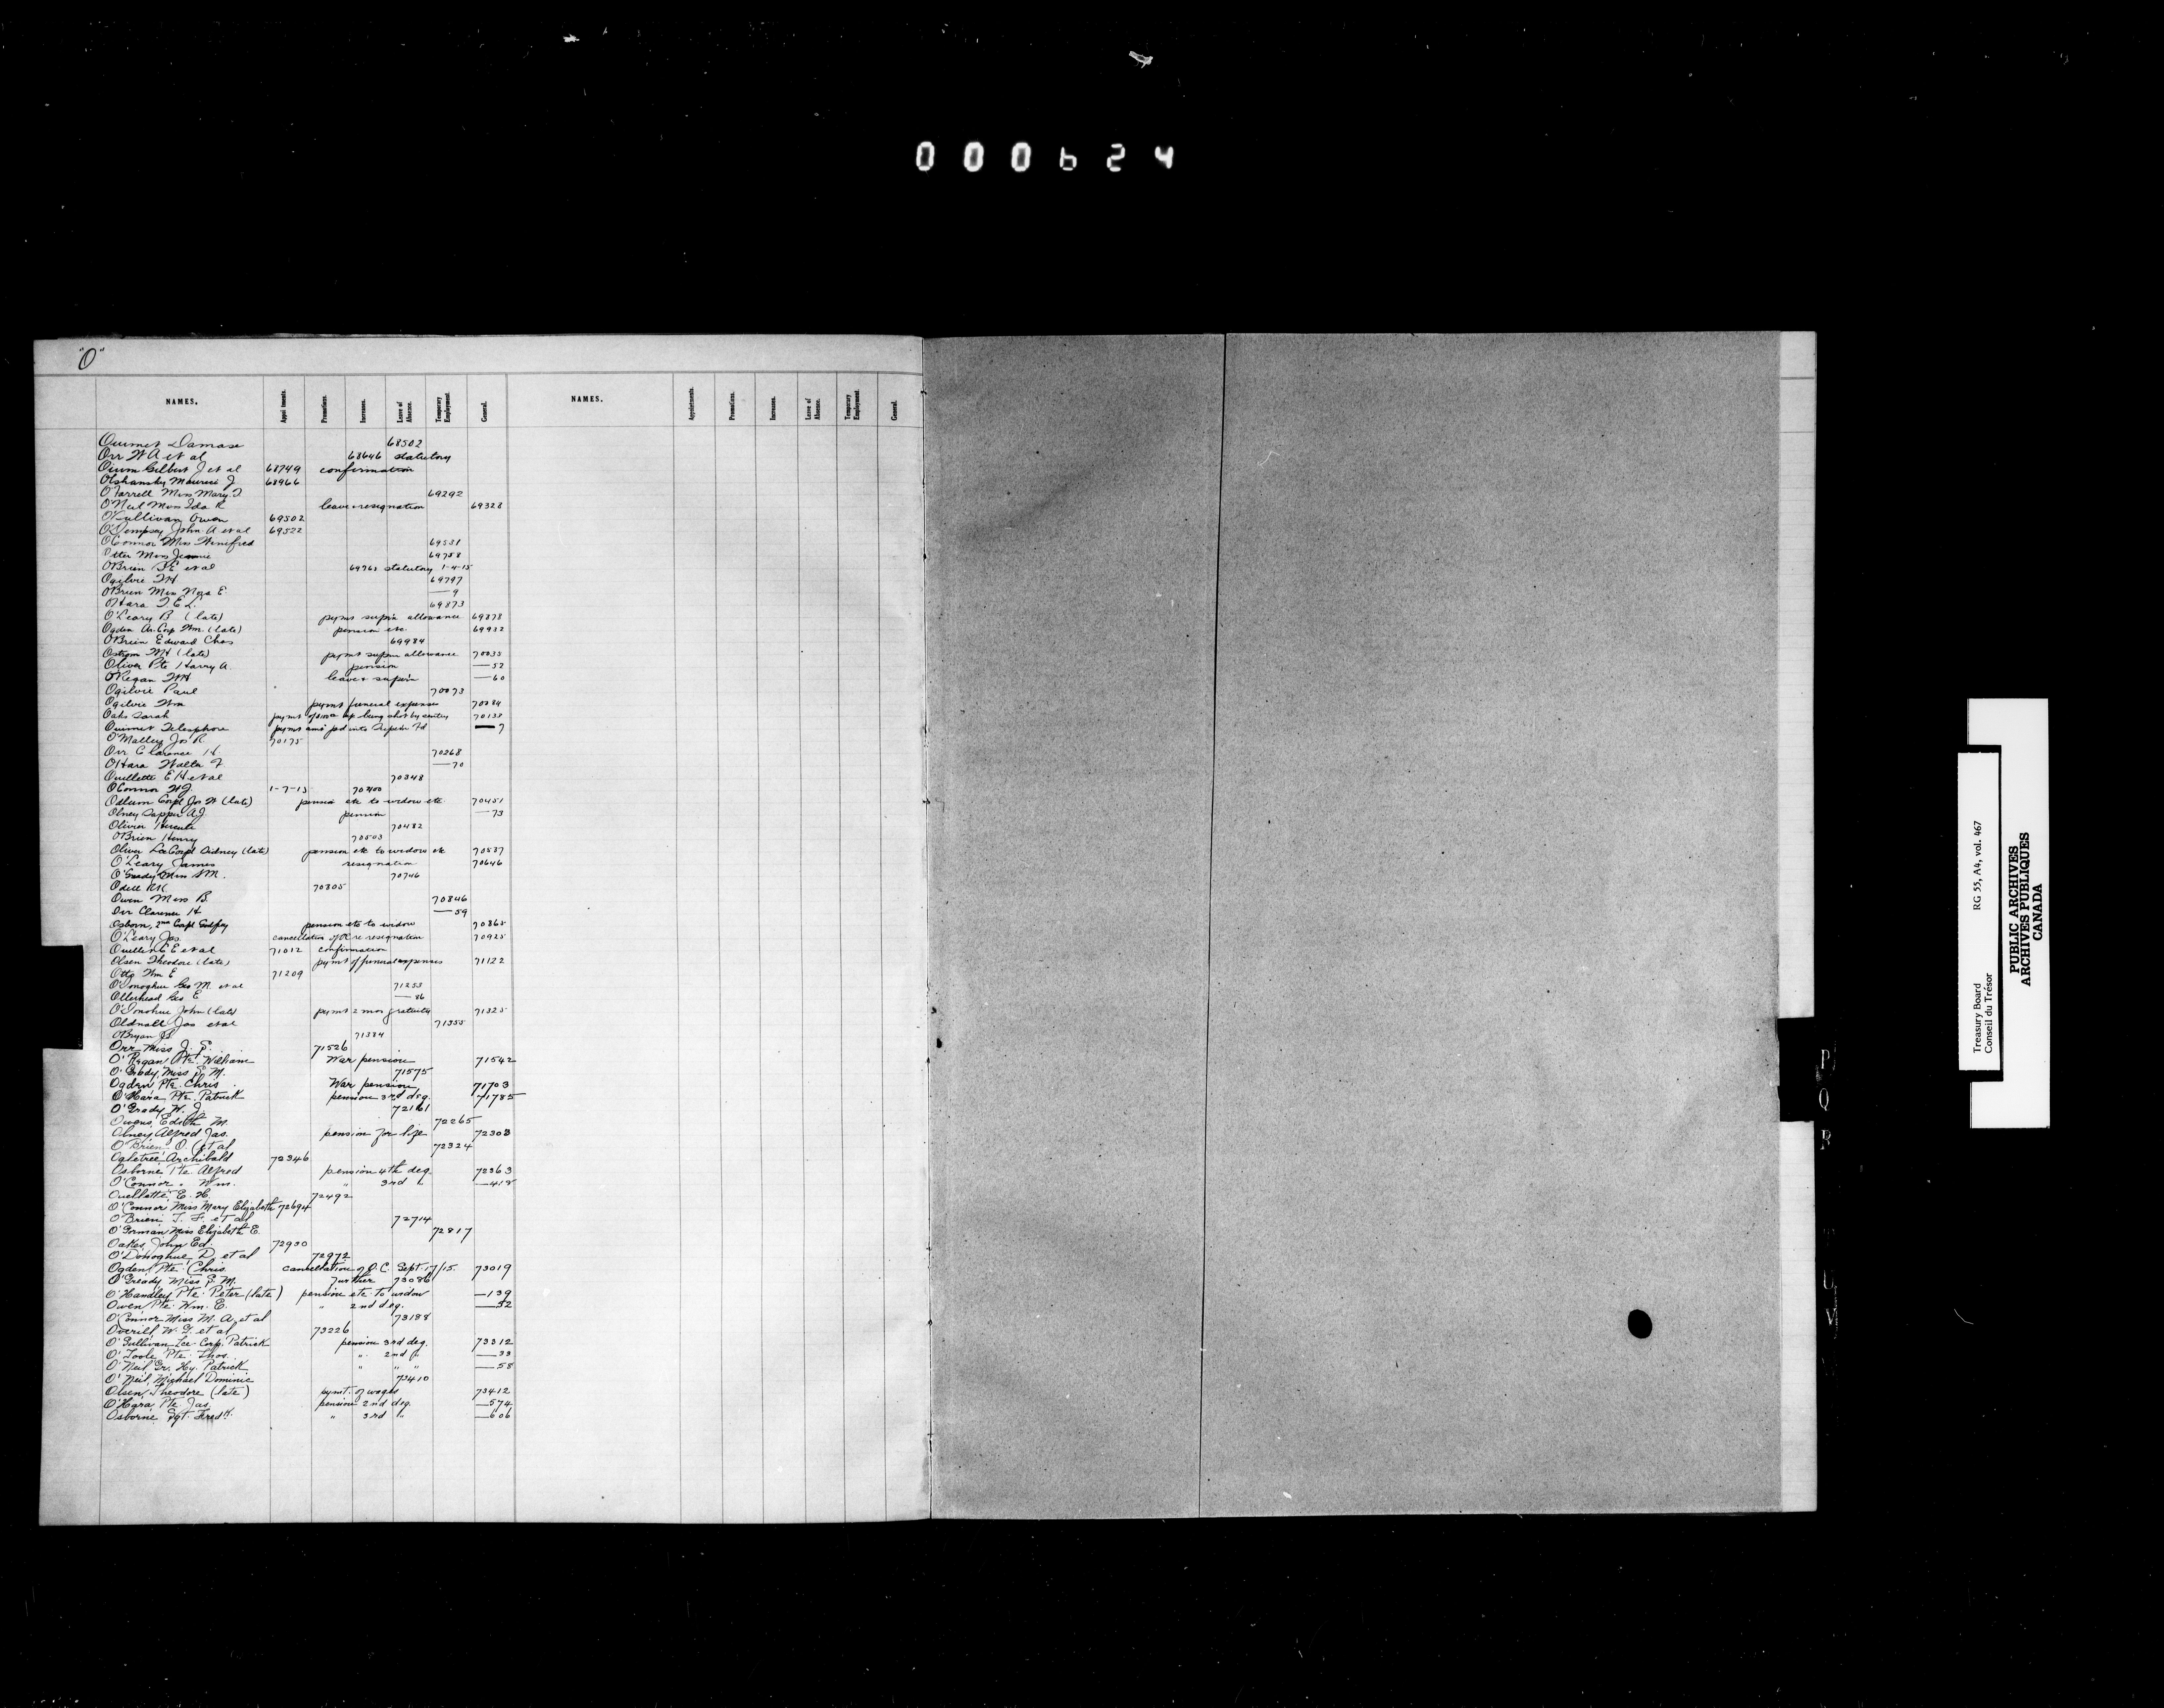 000624
"O"
NAMES. Appointments. Promotions. Increases. Leave of Absence. Temporary Employment. General. NAMES. Appointments. Promotions. Increases. Leave of Absence. Temporary Employment. General.
Ouimet Damase 68502
Orr W A et al 68646 statutory
Gilbert J et al 68749 confirmation
Olshansky Maurice J 68966
O'Farrell Miss Mary T 69292
O'Neil Miss Ida R leave & resignation 69328
O'Sullivan Owen 69502
O'Dempsey John A et al 69522
O'Connor Miss Winifred 69531
Otter Miss Jennie 69758
O'Brien et al 6976 statutory 1-4-15
Ogilvie 69797
O'Brien Miss Nora E — 9
O'Hara 69873
O'Leary B (late) pymt sup'n allowance 69878
Ogden Wm. (late) pension etc 69932
O'Brien Edward Chas 69984
Ostrom (late) pymt supn allowance 70035
Oliver Pte Harry A. pension — 52
O'Regan leave & sup'n — 60
Ogilvie Paul 70073
Ogilvie Wm pymt funeral expenses 70084
Oaks Sarah pymt of being shot by sentry 70138
Ouimet Telesphore pymt amt pd into Sup'n Fd — 7
O'Malley Jos R 70175
Orr Clarence H. 70268
O'Hara Walter F. — 70
Ouellette E H et al 70348
O'Connor W J 1-7-15 70400
Odlum Corpl Jos W (late) pension etc to widow etc 70451
Olney Sapper A.J. pension — 73
Olivier 70482
O'Brien Henry 70503
Oliver Lce Corpl Sidney (late) pension etc to widow etc 70587
O'Leary James resignation 70646
O'Grady Miss S M. 70746
Odell RK 70805
Owen Miss B. 70846
Orr Clarence H — 59
Osborn, 2nd Corpl Godfrey pension etc to widow 70865
O'Leary Jas. cancellation of OC re resignation 70925
Ouellet E E et al 71012 confirmation
Olsen Theodore (late) pymt of funeral expenses 71122
Otto Wm E 71209
O'Donoghue Geo M. et al 71253
Ollerhead Geo E — 86
O'Donohue John (late) pymt 2 mos gratuity 71325
Oldnall Jas et al 71355
O'Bryan 71384
Orr Miss J. E. 71526
O'Regan, Pte. William War pension 71542
O'Grady, Miss S. M. 71575
Ogden Pte. Chris. War pension 71703
O'Hara, Pte. Patrick pension 3rd deg. 71785
O'Grady W. J. 72161
Owens, Edith M. 72265
Olney Alfred Jas. pension for life 72303
O'Brien, O. et al 72324
Ogletree Archibald 72346
Osborne Pte. Alfred pension 4th deg. 72363
O'Connor " Wm. " 3rd " — 418
Ouellette, E. H. 72492
O'Connor Miss Mary Elizabeth 72694
O'Brien T. F. et al 72714
O'Gorman Miss Elizabeth E. 72817
Oakes, John Ed. 72930
O'Donoghue D. et al 72972
Ogden, Pte. Chris. cancellation of O.C. Sept. 17/15. 73019
O'Gready Miss S. M. Further 73086
O'Handley Pte. Peter (late) pension etc. to widow — 139
Owen Pte. Wm. E. " 2nd deg. — 52
O'Connor Miss M. A. et al 73198
Overill W. G. et al 73226
O'Sullivan Lce. Corp. Patrick pension 3rd deg. 73312
O'Toole Pte. Thos. " 2nd " — 33
O'Neil Gr. Hy. Patrick " " " — 58
O'Neil, Michael Dominic 73410
Olsen, Theodore (late) pymt. of wages 73412
O'Hara Pte. Jas. pension 2nd deg. — 574
Osborne Sgt. Fredk. " 3rd " — 606
P
Q
R
T
U
V
Treasury Board RG 55, A4, vol. 467
Conseil du Trésor
PUBLIC ARCHIVES
ARCHIVES PUBLIQUES
CANADA